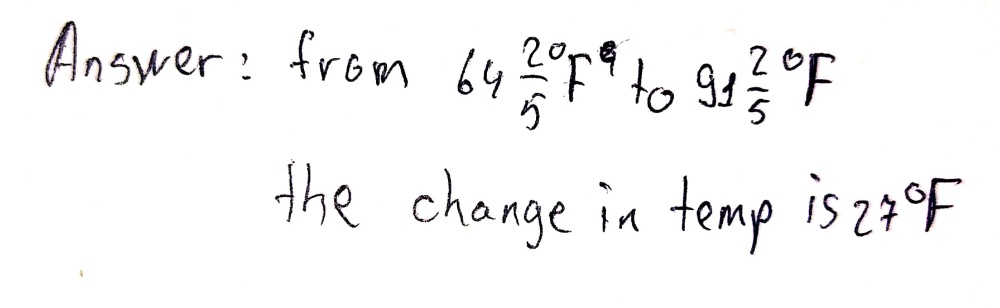 Answer: from 64 2/5 °F to 91 2/5 °F
the change in temp is 27°F